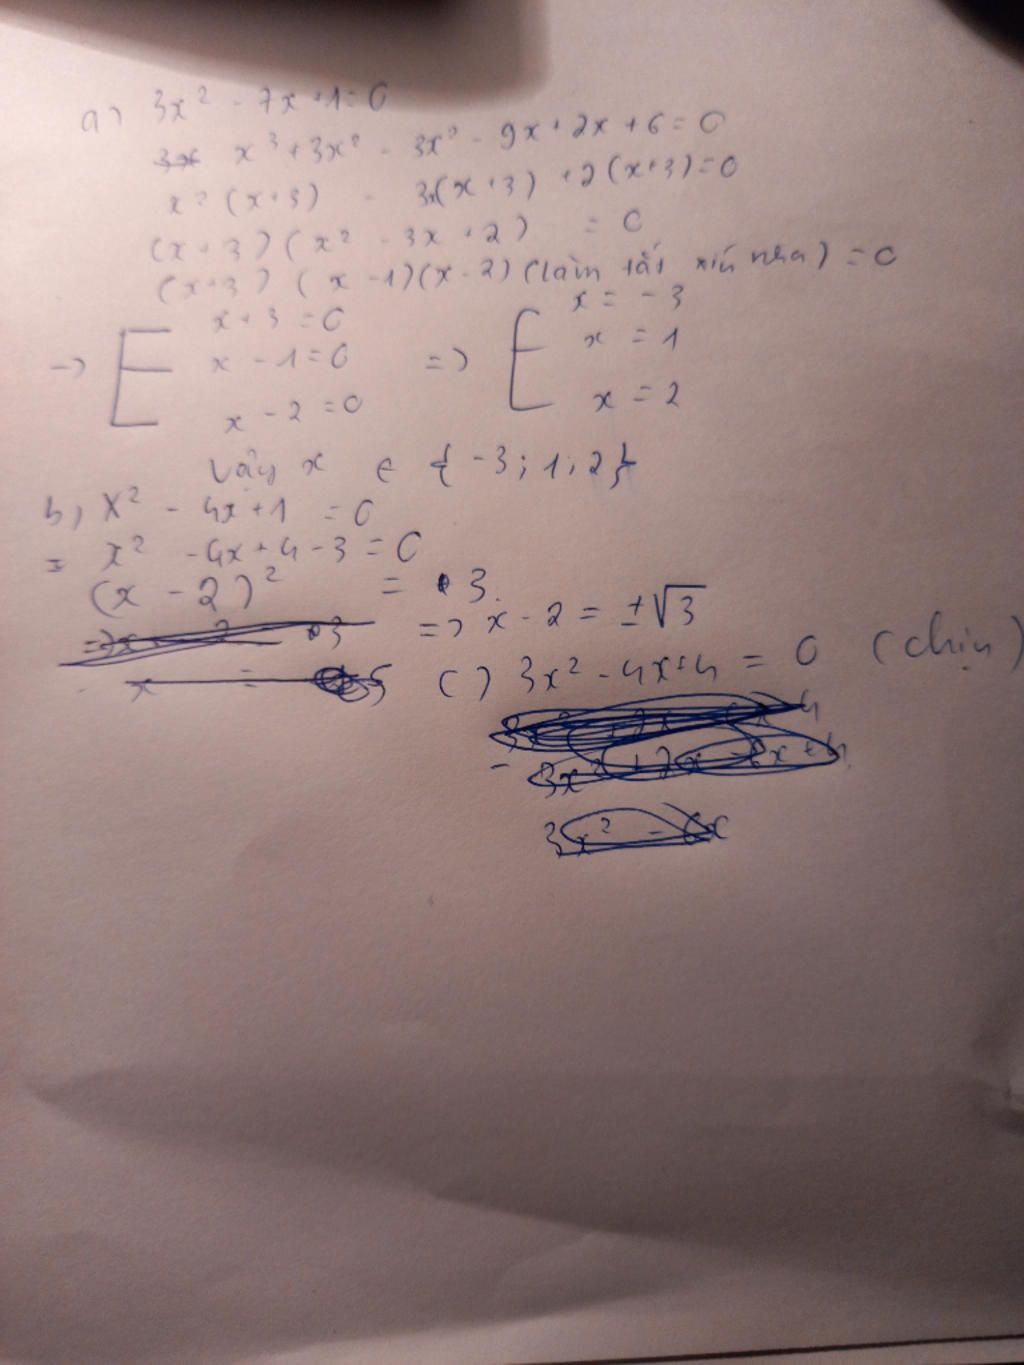 a) 3x² - 7x + 1 = 0
x³ + 3x² - 3x² - 9x + 2x + 6 = 0
x²(x+3) - 3x(x+3) + 2(x+3) = 0
(x+3)(x² - 3x + 2) = 0
(x+3)(x-1)(x-2) (làm tắt xíu nha) = 0
→ [ x + 3 = 0 => [ x = -3
x - 1 = 0 x = 1
x - 2 = 0 x = 2
Vậy x ∈ {-3; 1; 2}
b) x² - 4x + 1 = 0
= x² - 4x + 4 - 3 = 0
(x - 2)² = 3.
=> x - 2 = ±√3
c) 3x² - 4x + 4 = 0 (chịu)